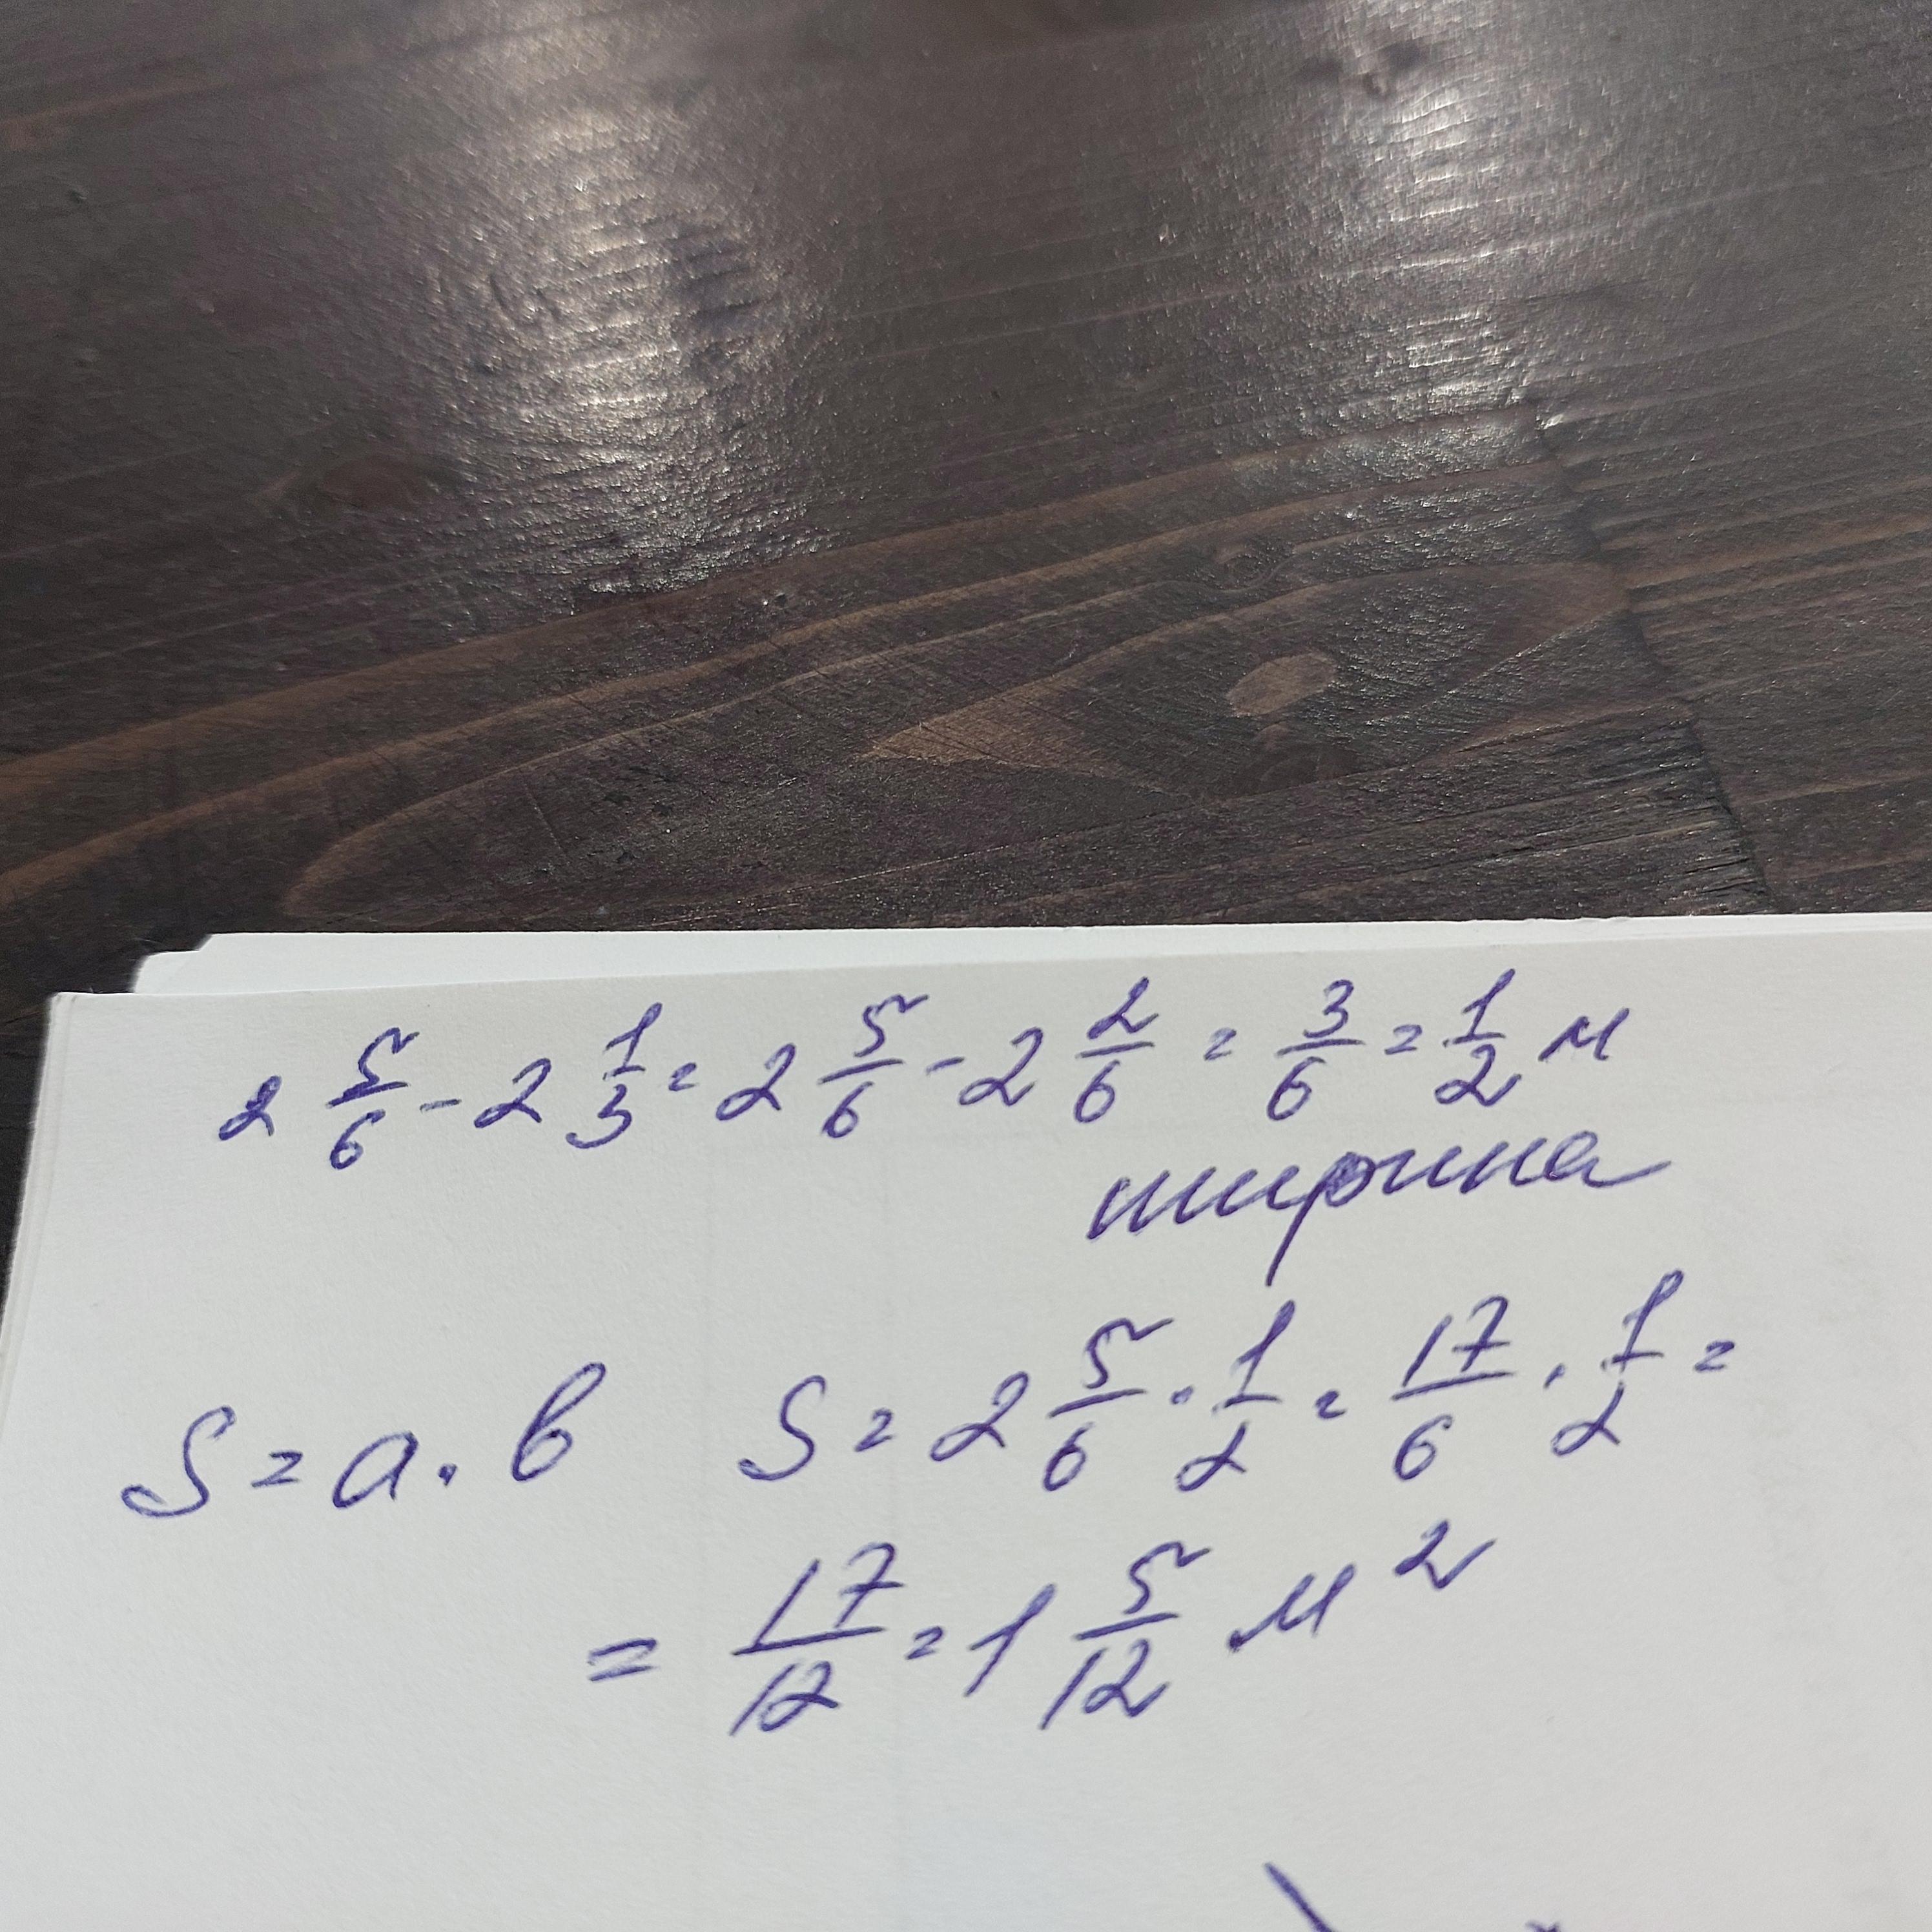 2 5/6 - 2 1/3 = 2 5/6 - 2 2/6 = 3/6 = 1/2 м
ширина
S = a · b S = 2 5/6 · 1/2 = 17/6 · 1/2 =
= 17/12 = 1 5/12 м²